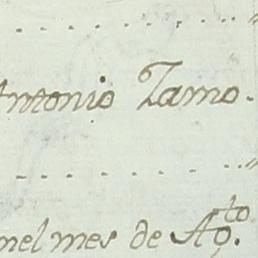 Antonio Zamo.
nel mes de Ag.to